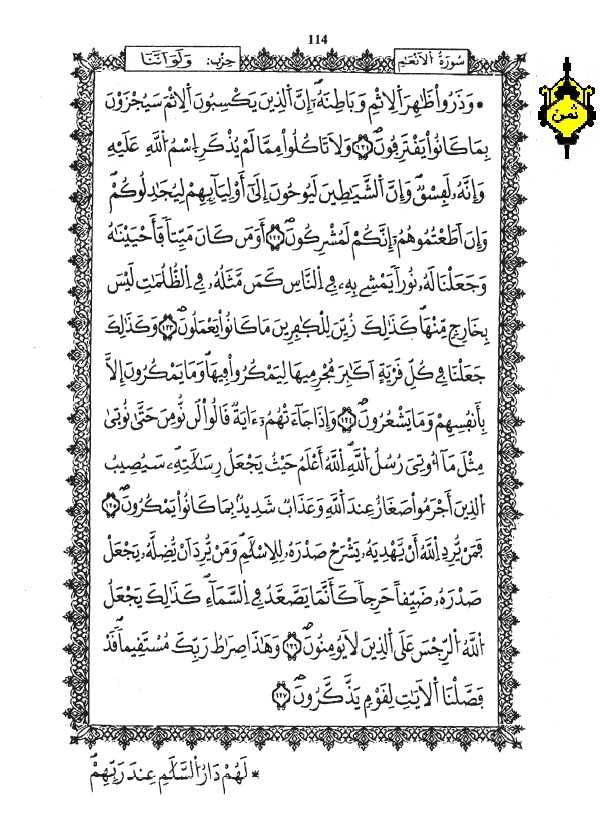 114
سُورَةُ الَانْعَٰمِ
حِزْبُ: وَلَوَ اَنَّنَا
ثمن
* وَذَرُواْ ظَٰهِرَ اَلِاثْمِ وَبَاطِنَهُۥٓ إِنَّ اَلذِينَ يَكْسِبُونَ اَلِاثْمَ سَيُجْزَوْنَ
بِمَا كَانُواْ يَقْتَرِفُونَۖ ١٢١ وَلَا تَاكُلُواْ مِمَّا لَمْ يُذْكَرِ اِسْمُ اُللَّهِ عَلَيْهِ
وَإِنَّهُۥ لَفِسْقٌۖ وَإِنَّ اَلشَّيَٰطِينَ لَيُوحُونَ إِلَىٰٓ أَوْلِيَآئِهِمْ لِيُجَٰدِلُوكُمْۖ
وَإِنَ اَطَعْتُمُوهُمُۥٓ إِنَّكُمْ لَمُشْرِكُونَۖ ١٢٢ أَوَمَن كَانَ مَيِّتاٗ فَأَحْيَيْنَٰهُ
وَجَعَلْنَا لَهُۥ نُوراٗ يَمْشِے بِهِۦ فِے اِلنَّاسِ كَمَن مَّثَلُهُۥ فِے اِلظُّلُمَٰتِ لَيْسَ
بِخَارِجٖ مِّنْهَاۖ كَذَٰلِكَ زُيِّنَ لِلْكَٰفِرِينَ مَا كَانُواْ يَعْمَلُونَۖ ١٢٣ وَكَذَٰلِكَ
جَعَلْنَا فِے كُلِّ قَرْيَةٍ اَكَٰبِرَ مُجْرِمِيهَا لِيَمْكُرُواْ فِيهَاۖ وَمَا يَمْكُرُونَ إِلَّا
بِأَنفُسِهِمْ وَمَا يَشْعُرُونَۖ ١٢٤ وَإِذَا جَآءَتْهُمُۥٓ ءَايَةٞ قَالُواْ لَن نُّومِنَ حَتَّىٰ نُوتَىٰ
مِثْلَ مَآ أُوتِىَ رُسُلُ اُللَّهِۖ اِللَّهُ أَعْلَمُ حَيْثُ يَجْعَلُ رِسَٰلَٰتِهِۦۖ سَيُصِيبُ
اُلذِينَ أَجْرَمُواْ صَغَارٌ عِندَ اَللَّهِ وَعَذَابٞ شَدِيدُۢ بِمَا كَانُواْ يَمْكُرُونَۖ ١٢٥
فَمَنْ يُّرِدِ اِللَّهُ أَنْ يَّهْدِيَهُۥ يَشْرَحْ صَدْرَهُۥ لِلِاسْلَٰمِۖ وَمَنْ يُّرِدَ اَنْ يُّضِلَّهُۥ يَجْعَلْ
صَدْرَهُۥ ضَيِّقاً حَرِجاٗ كَأَنَّمَا يَصَّعَّدُ فِے اِلسَّمَآءِۖ كَذَٰلِكَ يَجْعَلُ
اُللَّهُ اُلرِّجْسَ عَلَى اَلذِينَ لَا يُومِنُونَۖ ١٢٦ وَهَٰذَا صِرَٰطُ رَبِّكَ مُسْتَقِيماٗۖ قَدْ
فَصَّلْنَا اَلَايَٰتِ لِقَوْمٖ يَذَّكَّرُونَۖ ١٢٧
* لَهُمْ دَارُ اُلسَّلَٰمِ عِندَ رَبِّهِمْۖ